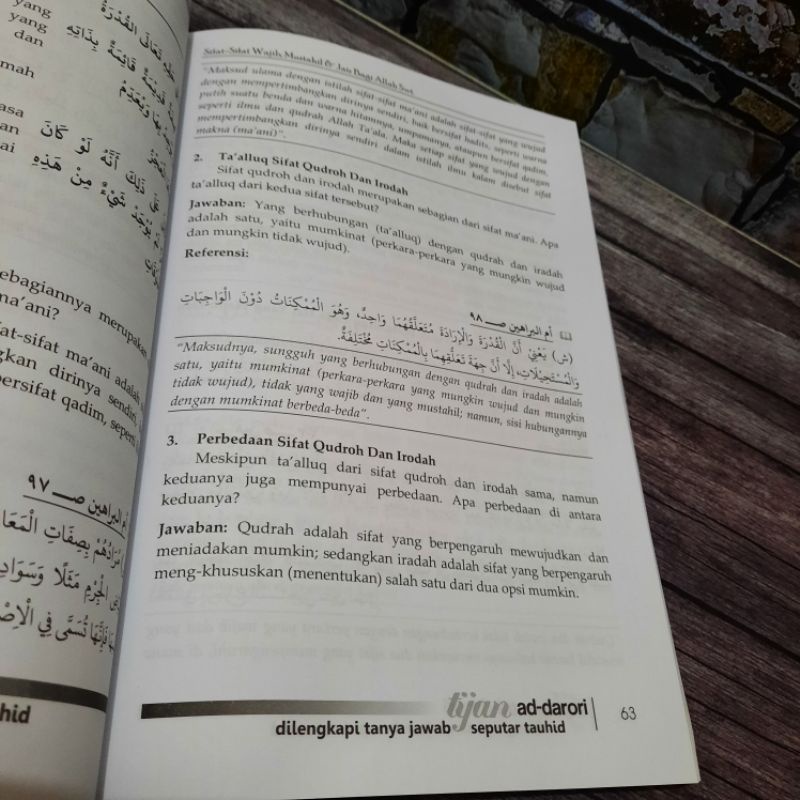 yang
yang
dan
mah
asa
an
ai
تَعَالَى الْقُدْرَةُ
قَائِمَةٌ بِذَاتِهِ
ذَلِكَ أَنَّهُ لَوْ كَانَ
يُوْجَدْ شَيْءٌ مِنْ هَذِهِ
ebagiannya merupakan
ma'ani?
at-sifat ma'ani adalah
gkan dirinya sendiri,
bersifat qadim, seperti
أم البراهين صـ ٩٧
بِصِفَاتِ الْمَعَا
الْجِرْمِ مَثَلًا وَسَوَادِ
فَإِنَّهَا تُسَمَّى فِي الْاِصْ
hid
Sifat-Sifat Wajib, Mustahil & Jaiz Bagi Allah Swt.
"Maksud ulama dengan istilah sifat-sifat ma'ani adalah sifat-sifat yang wujud
dengan mempertimbangkan dirinya sendiri, baik bersifat hadits, seperti warna
putih suatu benda dan warna hitamnya, umpamanya, ataupun bersifat qadim,
seperti ilmu dan qudrah Allah Ta'ala. Maka setiap sifat yang wujud dengan
mempertimbangkan dirinya sendiri dalam istilah ilmu kalam disebut sifat
makna (ma'ani)".
2. Ta'alluq Sifat Qudroh Dan Irodah
Sifat qudroh dan irodah merupakan sebagian dari sifat ma'ani. Apa
ta'alluq dari kedua sifat tersebut?
Jawaban: Yang berhubungan (ta'alluq) dengan qudrah dan iradah
adalah satu, yaitu mumkinat (perkara-perkara yang mungkin wujud
dan mungkin tidak wujud).
Referensi:
أم البراهين صـ ٩٨
(ش) يَعْنِيْ أَنَّ الْقُدْرَةَ وَالْإِرَادَةَ مُتَعَلَّقُهُمَا وَاحِدٌ، وَهُوَ الْمُمْكِنَاتُ دُوْنَ الْوَاجِبَاتِ
وَالْمُسْتَحِيْلَاتِ، إِلَّا أَنَّ جِهَةَ تَعَلُّقِهِمَا بِالْمُمْكِنَاتِ مُخْتَلِفَةٌ.
"Maksudnya, sungguh yang berhubungan dengan qudrah dan iradah adalah
satu, yaitu mumkinat (perkara-perkara yang mungkin wujud dan mungkin
tidak wujud), tidak yang wajib dan yang mustahil; namun, sisi hubungannya
dengan mumkinat berbeda-beda".
3. Perbedaan Sifat Qudroh Dan Irodah
Meskipun ta'alluq dari sifat qudroh dan irodah sama, namun
keduanya juga mempunyai perbedaan. Apa perbedaan di antara
keduanya?
Jawaban: Qudrah adalah sifat yang berpengaruh mewujudkan dan
meniadakan mumkin; sedangkan iradah adalah sifat yang berpengaruh
meng-khususkan (menentukan) salah satu dari dua opsi mumkin.
tijan ad-darori
dilengkapi tanya jawab seputar tauhid
63